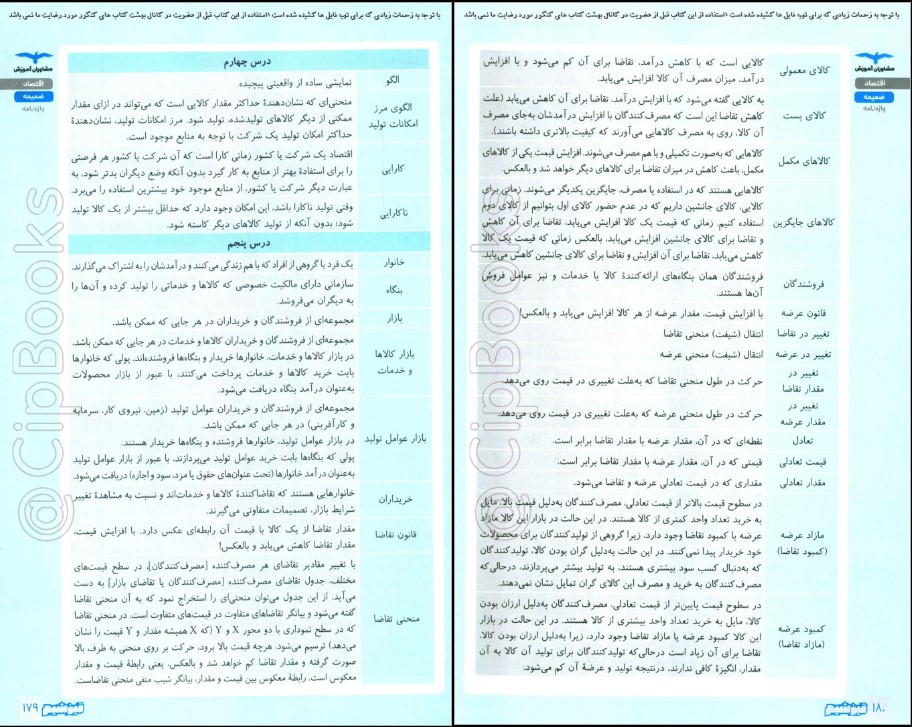 با توجه به زحمات زیادی که برای تهیه فایل ها کشیده شده است ؛استفاده از این کتاب قبل از عضویت در کانال بهشت کتاب های کنکور مورد رضایت ما نمی باشد
مشاوران آموزش
اقتصاد
ضمیمه
واژه‌نامه
درس چهارم
الگو
نمایشی ساده از واقعیتی پیچیده
الگوی مرز امکانات تولید
منحنی‌ای که نشان‌دهندهٔ حداکثر مقدار کالایی است که می‌تواند در ازای مقدار
ممکنی از دیگر کالاهای تولیدشده، تولید شود. مرز امکانات تولید، نشان‌دهندهٔ
حداکثر امکان تولید یک شرکت با توجه به منابع موجود است.
کارایی
اقتصاد یک شرکت یا کشور زمانی کارا است که آن شرکت یا کشور هر فرصتی
را برای استفادهٔ بهتر از منابع به کار گیرد بدون آنکه وضع دیگران بدتر شود، به
عبارت دیگر شرکت یا کشور، از منابع موجود خود بیشترین استفاده را می‌برد.
ناکارایی
وقتی تولید ناکارا باشد، این امکان وجود دارد که حداقل بیشتر از یک کالا تولید
شود؛ بدون آنکه از تولید کالاهای دیگر کاسته شود.
درس پنجم
خانوار
یک فرد یا گروهی از افراد که با هم زندگی می‌کنند و درآمدشان را به اشتراک می‌گذارند.
بنگاه
سازمانی دارای مالکیت خصوصی که کالاها و خدماتی را تولید کرده و آن‌ها را
به دیگران می‌فروشد.
بازار
مجموعه‌ای از فروشندگان و خریداران در هر جایی که ممکن باشد.
بازار کالاها و خدمات
مجموعه‌ای از فروشندگان و خریداران کالاها و خدمات در هر جایی که ممکن باشد.
در بازار کالاها و خدمات، خانوارها خریدار و بنگاه‌ها فروشنده‌اند. پولی که خانوارها
بابت خرید کالاها و خدمات پرداخت می‌کنند، با عبور از بازار محصولات
به‌عنوان درآمد بنگاه دریافت می‌شود.
بازار عوامل تولید
مجموعه‌ای از فروشندگان و خریداران عوامل تولید (زمین، نیروی کار، سرمایه
و کارآفرینی) در هر جایی که ممکن باشد.
در بازار عوامل تولید، خانوارها فروشنده و بنگاه‌ها خریدار هستند.
پولی که بنگاه‌ها بابت خرید عوامل تولید می‌پردازند، با عبور از بازار عوامل تولید
به‌عنوان درآمد خانوارها (تحت عنوان‌های حقوق یا مزد، سود و اجاره) دریافت می‌شود.
خریداران
خانوارهایی هستند که تقاضاکنندهٔ کالاها و خدمات‌اند و نسبت به مشاهدهٔ تغییر
شرایط بازار، تصمیمات متفاوتی می‌گیرند.
قانون تقاضا
مقدار تقاضا از یک کالا با قیمت آن رابطه‌ای عکس دارد. با افزایش قیمت،
مقدار تقاضا کاهش می‌یابد و بالعکس!
منحنی تقاضا
با تغییر مقادیر تقاضای هر مصرف‌کننده [مصرف‌کنندگان]، در سطح قیمت‌های
مختلف، جدول تقاضای مصرف‌کننده [مصرف‌کنندگان یا تقاضای بازار] به دست
می‌آید. از این جدول می‌توان منحنی‌ای را استخراج نمود که به آن منحنی تقاضا
گفته می‌شود و بیانگر تقاضاهای متفاوت در قیمت‌های متفاوت است. در منحنی تقاضا
که در سطح نموداری با دو محور X و Y (که X همیشه مقدار و Y قیمت را نشان
می‌دهد) ترسیم می‌شود، هرچه قیمت بالا برود، حرکت بر روی منحنی به طرف بالا
صورت گرفته و مقدار تقاضا کم خواهد شد و بالعکس، یعنی رابطهٔ قیمت و مقدار
معکوس است. رابطهٔ معکوس بین قیمت و مقدار، بیانگر شیب منفی منحنی تقاضاست.
۱۷۹
@CipBooks
با توجه به زحمات زیادی که برای تهیه فایل ها کشیده شده است ؛استفاده از این کتاب قبل از عضویت در کانال بهشت کتاب های کنکور مورد رضایت ما نمی باشد
مشاوران آموزش
اقتصاد
ضمیمه
واژه‌نامه
کالای معمولی
کالایی است که با کاهش درآمد، تقاضا برای آن کم می‌شود و با افزایش
درآمد، میزان مصرف آن کالا افزایش می‌یابد.
کالای پست
به کالایی گفته می‌شود که با افزایش درآمد، تقاضا برای آن کاهش می‌یابد (علت
کاهش تقاضا این است که مصرف‌کنندگان با افزایش درآمدشان به‌جای مصرف
آن کالا، روی به مصرف کالاهایی می‌آورند که کیفیت بالاتری داشته باشند).
کالاهای مکمل
کالاهایی که به‌صورت تکمیلی و با هم مصرف می‌شوند. افزایش قیمت یکی از کالاهای
مکمل، باعث کاهش در میزان تقاضا برای کالاهای دیگر خواهد شد و بالعکس.
کالاهای جایگزین
کالاهایی هستند که در استفاده یا مصرف، جایگزین یکدیگر می‌شوند. زمانی برای
کالایی، کالای جانشین داریم که در عدم حضور کالای اول بتوانیم از کالای دوم
استفاده کنیم. زمانی که قیمت یک کالا افزایش می‌یابد، تقاضا برای آن کاهش
و تقاضا برای کالای جانشین افزایش می‌یابد، بالعکس زمانی که قیمت یک کالا
کاهش می‌یابد، تقاضا برای آن افزایش و تقاضا برای کالای جانشین کاهش می‌یابد.
فروشندگان
فروشندگان همان بنگاه‌های ارائه‌کنندهٔ کالا یا خدمات و نیز عوامل فروش
آن‌ها هستند.
قانون عرضه
با افزایش قیمت، مقدار عرضه از هر کالا افزایش می‌یابد و بالعکس!
تغییر در تقاضا
انتقال (شیفت) منحنی تقاضا
تغییر در عرضه
انتقال (شیفت) منحنی عرضه
تغییر در مقدار تقاضا
حرکت در طول منحنی تقاضا که به‌علت تغییری در قیمت روی می‌دهد.
تغییر در مقدار عرضه
حرکت در طول منحنی عرضه که به‌علت تغییری در قیمت روی می‌دهد.
تعادل
نقطه‌ای که در آن، مقدار عرضه با مقدار تقاضا برابر است.
قیمت تعادلی
قیمتی که در آن، مقدار عرضه با مقدار تقاضا برابر است.
مقدار تعادلی
مقداری که در قیمت تعادلی عرضه و تقاضا می‌شود.
مازاد عرضه (کمبود تقاضا)
در سطوح قیمت بالاتر از قیمت تعادلی، مصرف‌کنندگان به‌دلیل قیمت بالا، مایل
به خرید تعداد واحد کمتری از کالا هستند. در این حالت در بازار این کالا مازاد
عرضه یا کمبود تقاضا وجود دارد، زیرا گروهی از تولیدکنندگان برای محصولات
خود خریدار پیدا نمی‌کنند. در این حالت به‌دلیل گران بودن کالا، تولیدکنندگان
که به‌دنبال کسب سود بیشتری هستند، به تولید بیشتر می‌پردازند، درحالی‌که
مصرف‌کنندگان به خرید و مصرف این کالای گران تمایل نشان نمی‌دهند.
کمبود عرضه (مازاد تقاضا)
در سطوح قیمت پایین‌تر از قیمت تعادلی، مصرف‌کنندگان به‌دلیل ارزان بودن
کالا، مایل به خرید تعداد واحد بیشتری از کالا هستند. در این حالت در بازار
این کالا کمبود عرضه یا مازاد تقاضا وجود دارد، زیرا به‌دلیل ارزان بودن کالا،
تقاضا برای آن زیاد است درحالی‌که تولیدکنندگان برای تولید آن کالا به آن
مقدار، انگیزهٔ کافی ندارند، درنتیجه تولید و عرضهٔ آن کم می‌شود.
۱۸۰
@CipBooks